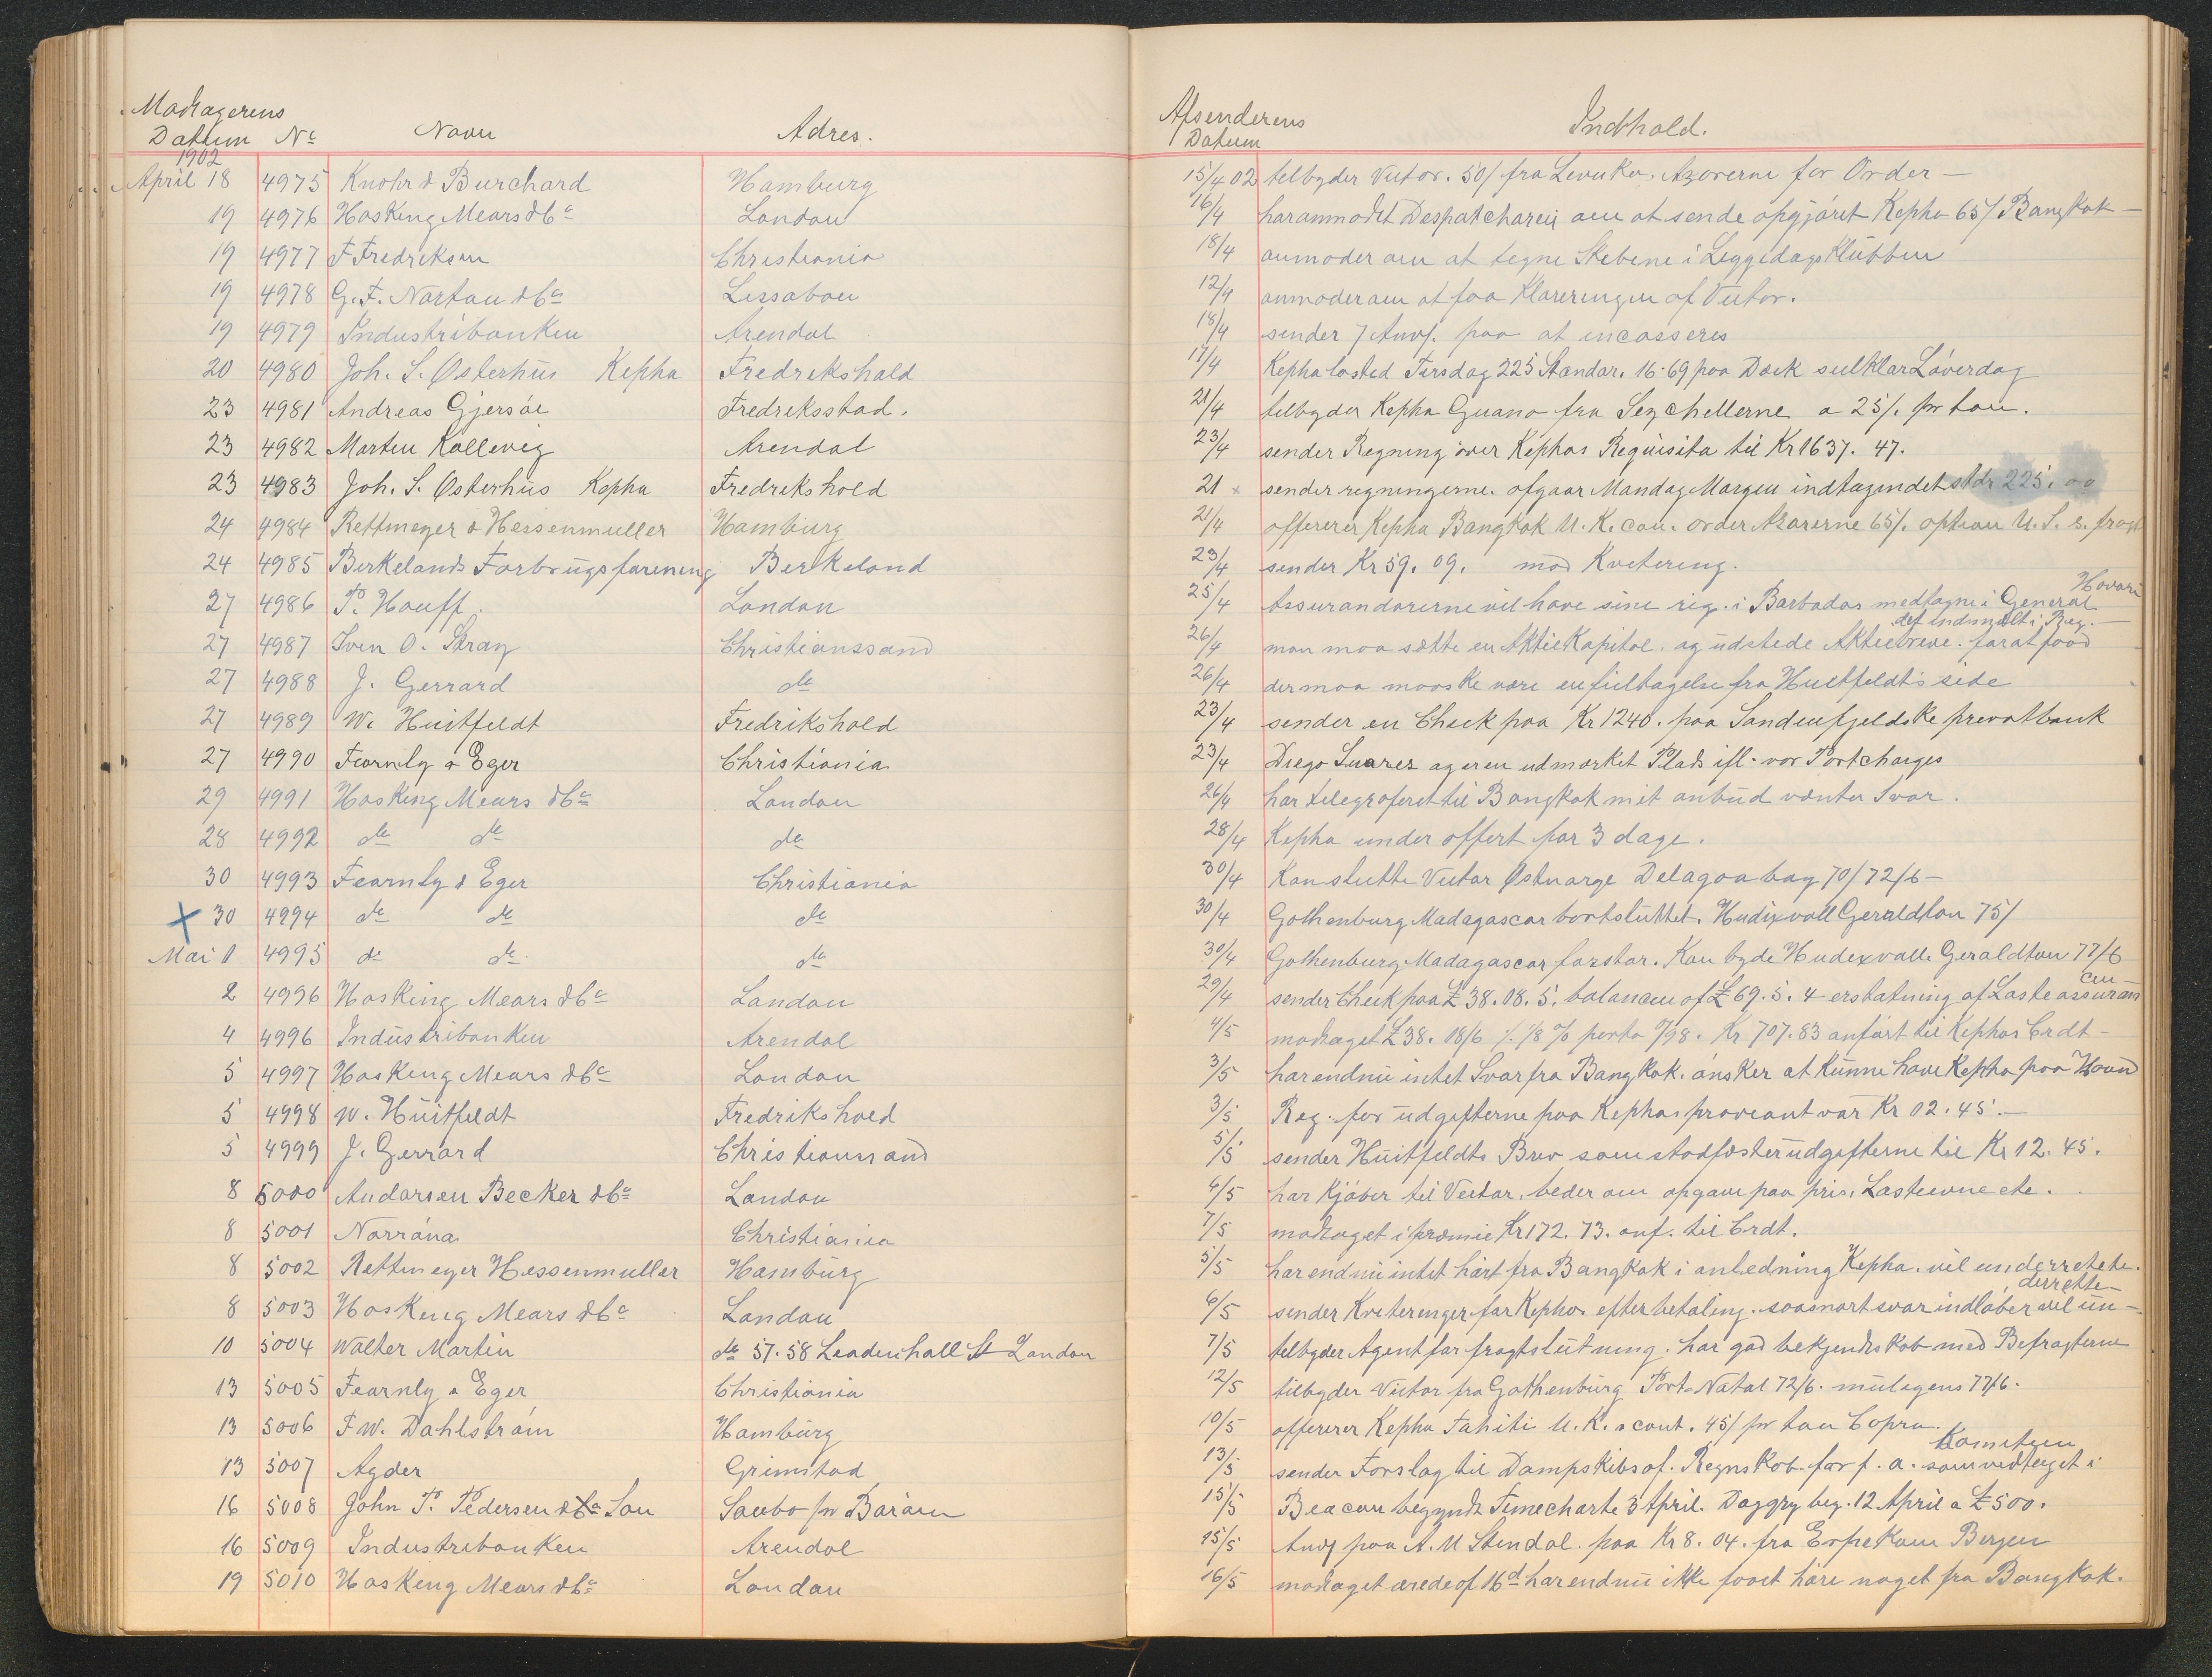 Modtagerens Afsenderens
Datum No Navn Adres. Datum Indhold.
1902
April 18 4975 Knohr & Burchard Hamburg 15/4 02 tilbyder Victor. 50/ fra Levuka. Azorerne for Order —
19 4976 Hosking Mears & Co London 16/4 har anmodet Despatchareur om at sende opgjöret Kepha 65/ Bangkok —
19 4977 F Fredriksen Christiania 18/4 anmoder om at tegne Skibene i Liggedags Klubben
19 4978 G. F. Nartou & Co Lissabon 12/4 anmoder om at faa Klareringen af Victor.
19 4979 Industribanken Arendal 18/4 sender 7 Anvf. paa at incasseres
20 4980 Joh. S. Østerhus Kepha Fredrikshald 17/4 Kepha lasted Tirsdag 225 Standar. 16-69 paa Dæk seilklar Löverdag
23 4981 Andreas Gjersöe Fredriksstad. 21/4 tilbyder Kepha Guano fra Seychellerne a 25/. pr ton.
23 4982 Morten Kallevig Arendal 23/4 sender Regning over Kephas Requisita til Kr 1637. 47.
23 4983 Joh. S. Østerhus Kepha Fredrikshald 21 x sender regningerne. afgaar Mandag Morgen indtagendet stdr 225. 00
24 4984 Rettmeyer & Hessenmuller Hamburg 21/4 offererer Kepha Bangkok U. K. con. order Azorerne 65/. option U. S. s. fragt
24 4985 Berkelands Forbrugsforening Berkeland 23/4 sender Kr 59. 09. mod Kvitering.
27 4986 P. Houff. London 25/4 Assurandörerne vil have sine rig. i Barbados medtagne i General Havari
27 4987 Sven O. Stray Christianssand 26/4 man maa sætte en Aktiekapital. og udstede Aktiebreve. for at faa det indmeldt i Reg. —
27 4988 J. Gerrard do 26/4 der maa maaske være en feiltagelse fra Huitfeldt's side
27 4989 W. Huitfeldt Fredrikshald 23/4 sender en Check paa Kr 1240. paa Sandenfjeldske privatbank
27 4990 Fearnly & Eger Christiania 23/4 Diego Suarez ageren udmærket Plads ifl. vor Portcharges
29 4991 Hosking Mears & Co London 26/4 har telegraferet til Bangkok mit anbud venter Svar.
28 4992 do do do 28/4 Kepha under offert for 3 dage.
30 4993 Fearnly & Eger Christiania 30/4 Kan slutte Victor Østnorge Delagoa bay 70/72/6 —
x 30 4994 do do do 30/4 Gothenburg Madagascar bortsluttet. Hudixvall Geraldton 75/
Mai 1 4995 do do do 30/4 Gothenburg Madagascar forstor. Kan byde Hudixvall. Geraldton 77/6
2 4996 Hosking Mears & Co London 29/4 sender Check paa £ 38. 08. 5. balancen af £ 69. 5. 4 erstatning af Laste assuran cen —
4 4996 Industribanken Arendal 4/5 modtaget £ 38. 18/6 /. 1/8 % porto /98. Kr 707. 83 anfört til Kephas Crdt —
5 4997 Hosking Mears & Co London 3/5 har endnu intet Svar fra Bangkok. önsker at kunne have Kepha paa Haand
5 4998 W. Huitfeldt Fredrikshald 3/5 Reg. for udgifterne paa Kephas proviant var Kr 02. 45. —
5 4999 J. Gerrard Christianssand 5/5 sender Huitfeldts Brev som stadfæster udgifterne til Kr 12. 45.
8 5000 Andorsen Becker & Co London 6/5 har Kjöber til Victor. beder om opgave paa pris, Lasteevne etc.
8 5001 Norröna Christiania 7/5 modtaget i præmie Kr 172. 73. anf. til Crdt.
8 5002 Rettmeyer Hessenmuller Hamburg 5/5 har endnu intet hört fra Bangkok i anledning Kepha. vil underretete.
8 5003 Hosking Mears & Co London 6/5 sender Kviteringer for Kephas efterbetaling. saasnart svar indlöber vil un- derrette —
10 5004 Walter Martin do 57. 58 Leadenhall St London 7/5 tilbyder Agent for fragtslutning. har god bekjendtskab med Befragterne
13 5005 Fearnly & Eger Christiania 12/5 tilbyder Victor fra Gothenburg Port Natal 72/6. muligens 77/6.
13 5006 F W. Dahlström Hamburg 10/5 offererer Kepha Tahiti U. K. s cont. 45/ pr ton Copra.
13 5007 Agder Grimstad 13/5 sender Forslag til Dampskibsaf. Regnskab for f. a. som vedtaget i Komiteen
16 5008 John P. Pedersen & Co Son Saubo pr Baröen 15/5 Beacon begyndt Timecharte 3 April. Daggry beg. 12 April a £ 500.
16 5009 Industribanken Arendal 15/5 Anvf paa A. M Stendal. paa Kr 8. 04. fra Erpekom Bergen
19 5010 Hosking Mears & Co London 16/5 modtaget ærede af 16d har endnu ikke faaet höre noget fra Bangkok.